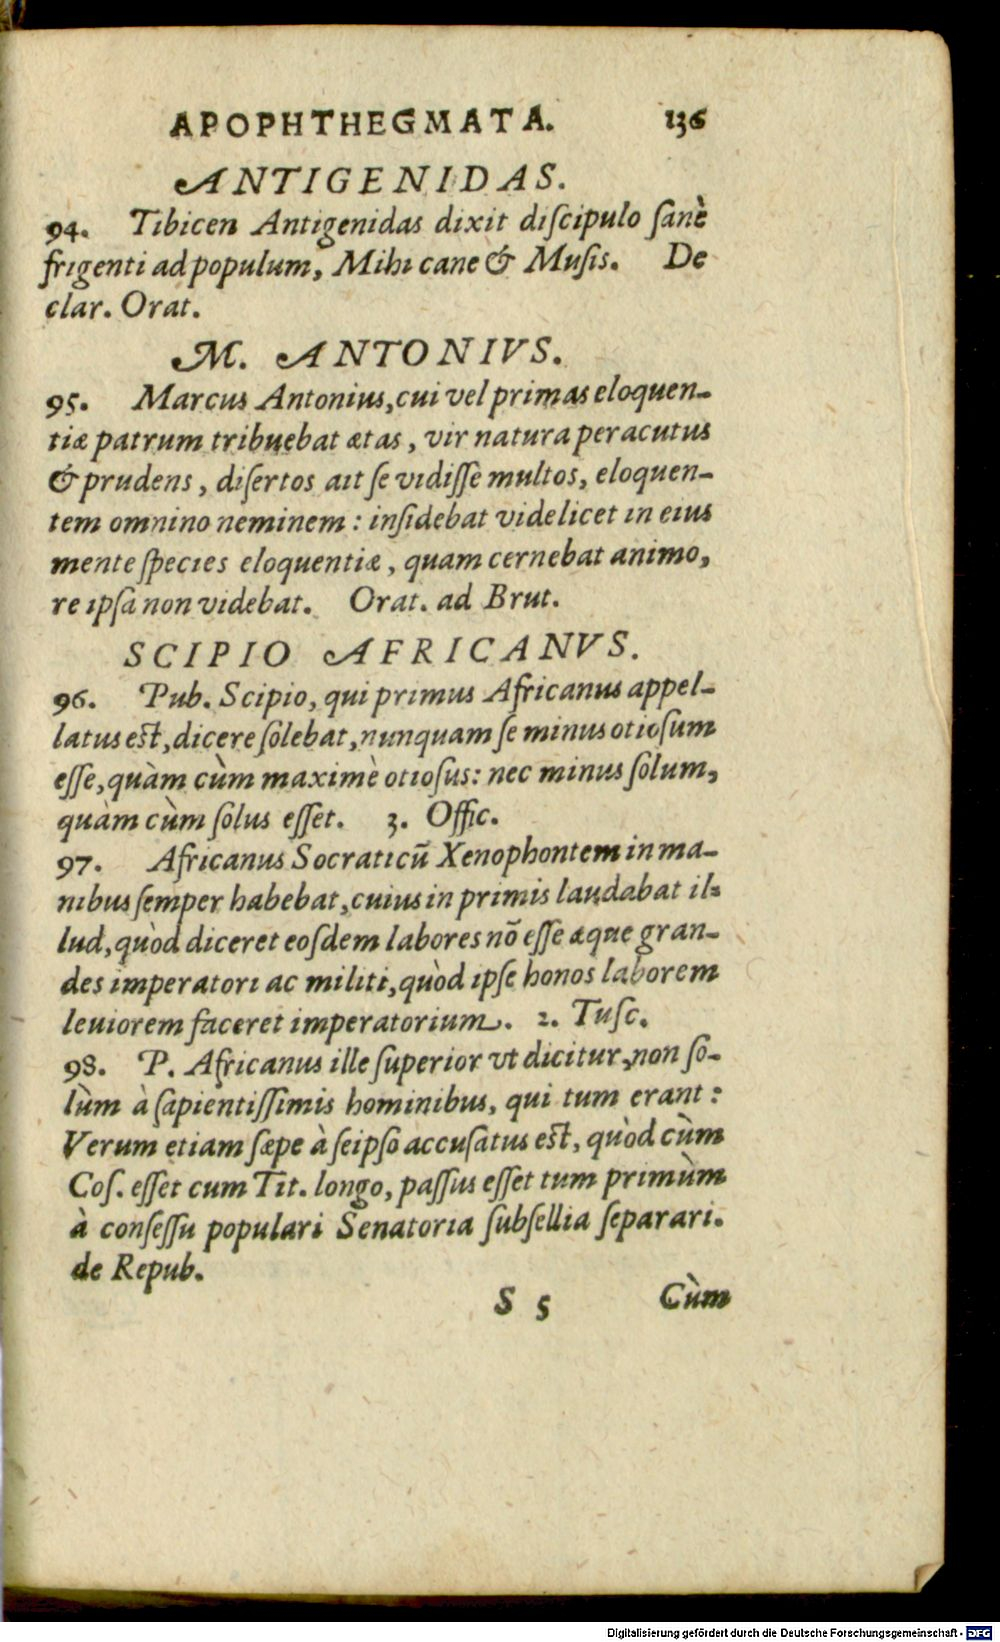 APOPHTHEGMATA. 136
ANTIGENIDAS.
94. Tibicen Antigenidas dixit diſcipulo ſanè
frigenti ad populum, Mihi cane & Muſis. De
clar. Orat.
M. ANTONIVS.
95. Marcus Antonius, cui vel primas eloquen-
tiæ patrum tribuebat ætas, vir natura peracutus
& prudens, diſertos ait ſe vidiſſe multos, eloquen-
tem omnino neminem: inſidebat videlicet in eius
mente ſpecies eloquentiæ, quam cernebat animo,
re ipſa non videbat. Orat. ad Brut.
SCIPIO AFRICANVS.
96. Pub. Scipio, qui primus Africanus appel-
latus eſt, dicere ſolebat, nunquam ſe minus otioſum
eſſe, quàm cùm maximè otioſus: nec minus ſolum,
quàm cùm ſolus eſſet. 3. Offic.
97. Africanus Socraticũ Xenophontem in ma-
nibus ſemper habebat, cuius in primis laudabat il-
lud, quòd diceret eoſdem labores nõ eſſe æque gran-
des imperatori ac militi, quòd ipſe honos laborem
leuiorem faceret imperatorium. 2. Tuſc.
98. P. Africanus ille ſuperior vt dicitur, non ſo-
lùm à ſapientiſſimis hominibus, qui tum erant:
Verum etiam ſæpe à ſeipſo accuſatus eſt, quòd cùm
Coſ. eſſet cum Tit. longo, paſſus eſſet tum primùm
à conſeſſu populari Senatoria ſubſellia ſeparari.
de Repub.
S 5 Cùm
Digitalisierung gefördert durch die Deutsche Forschungsgemeinschaft - DFG